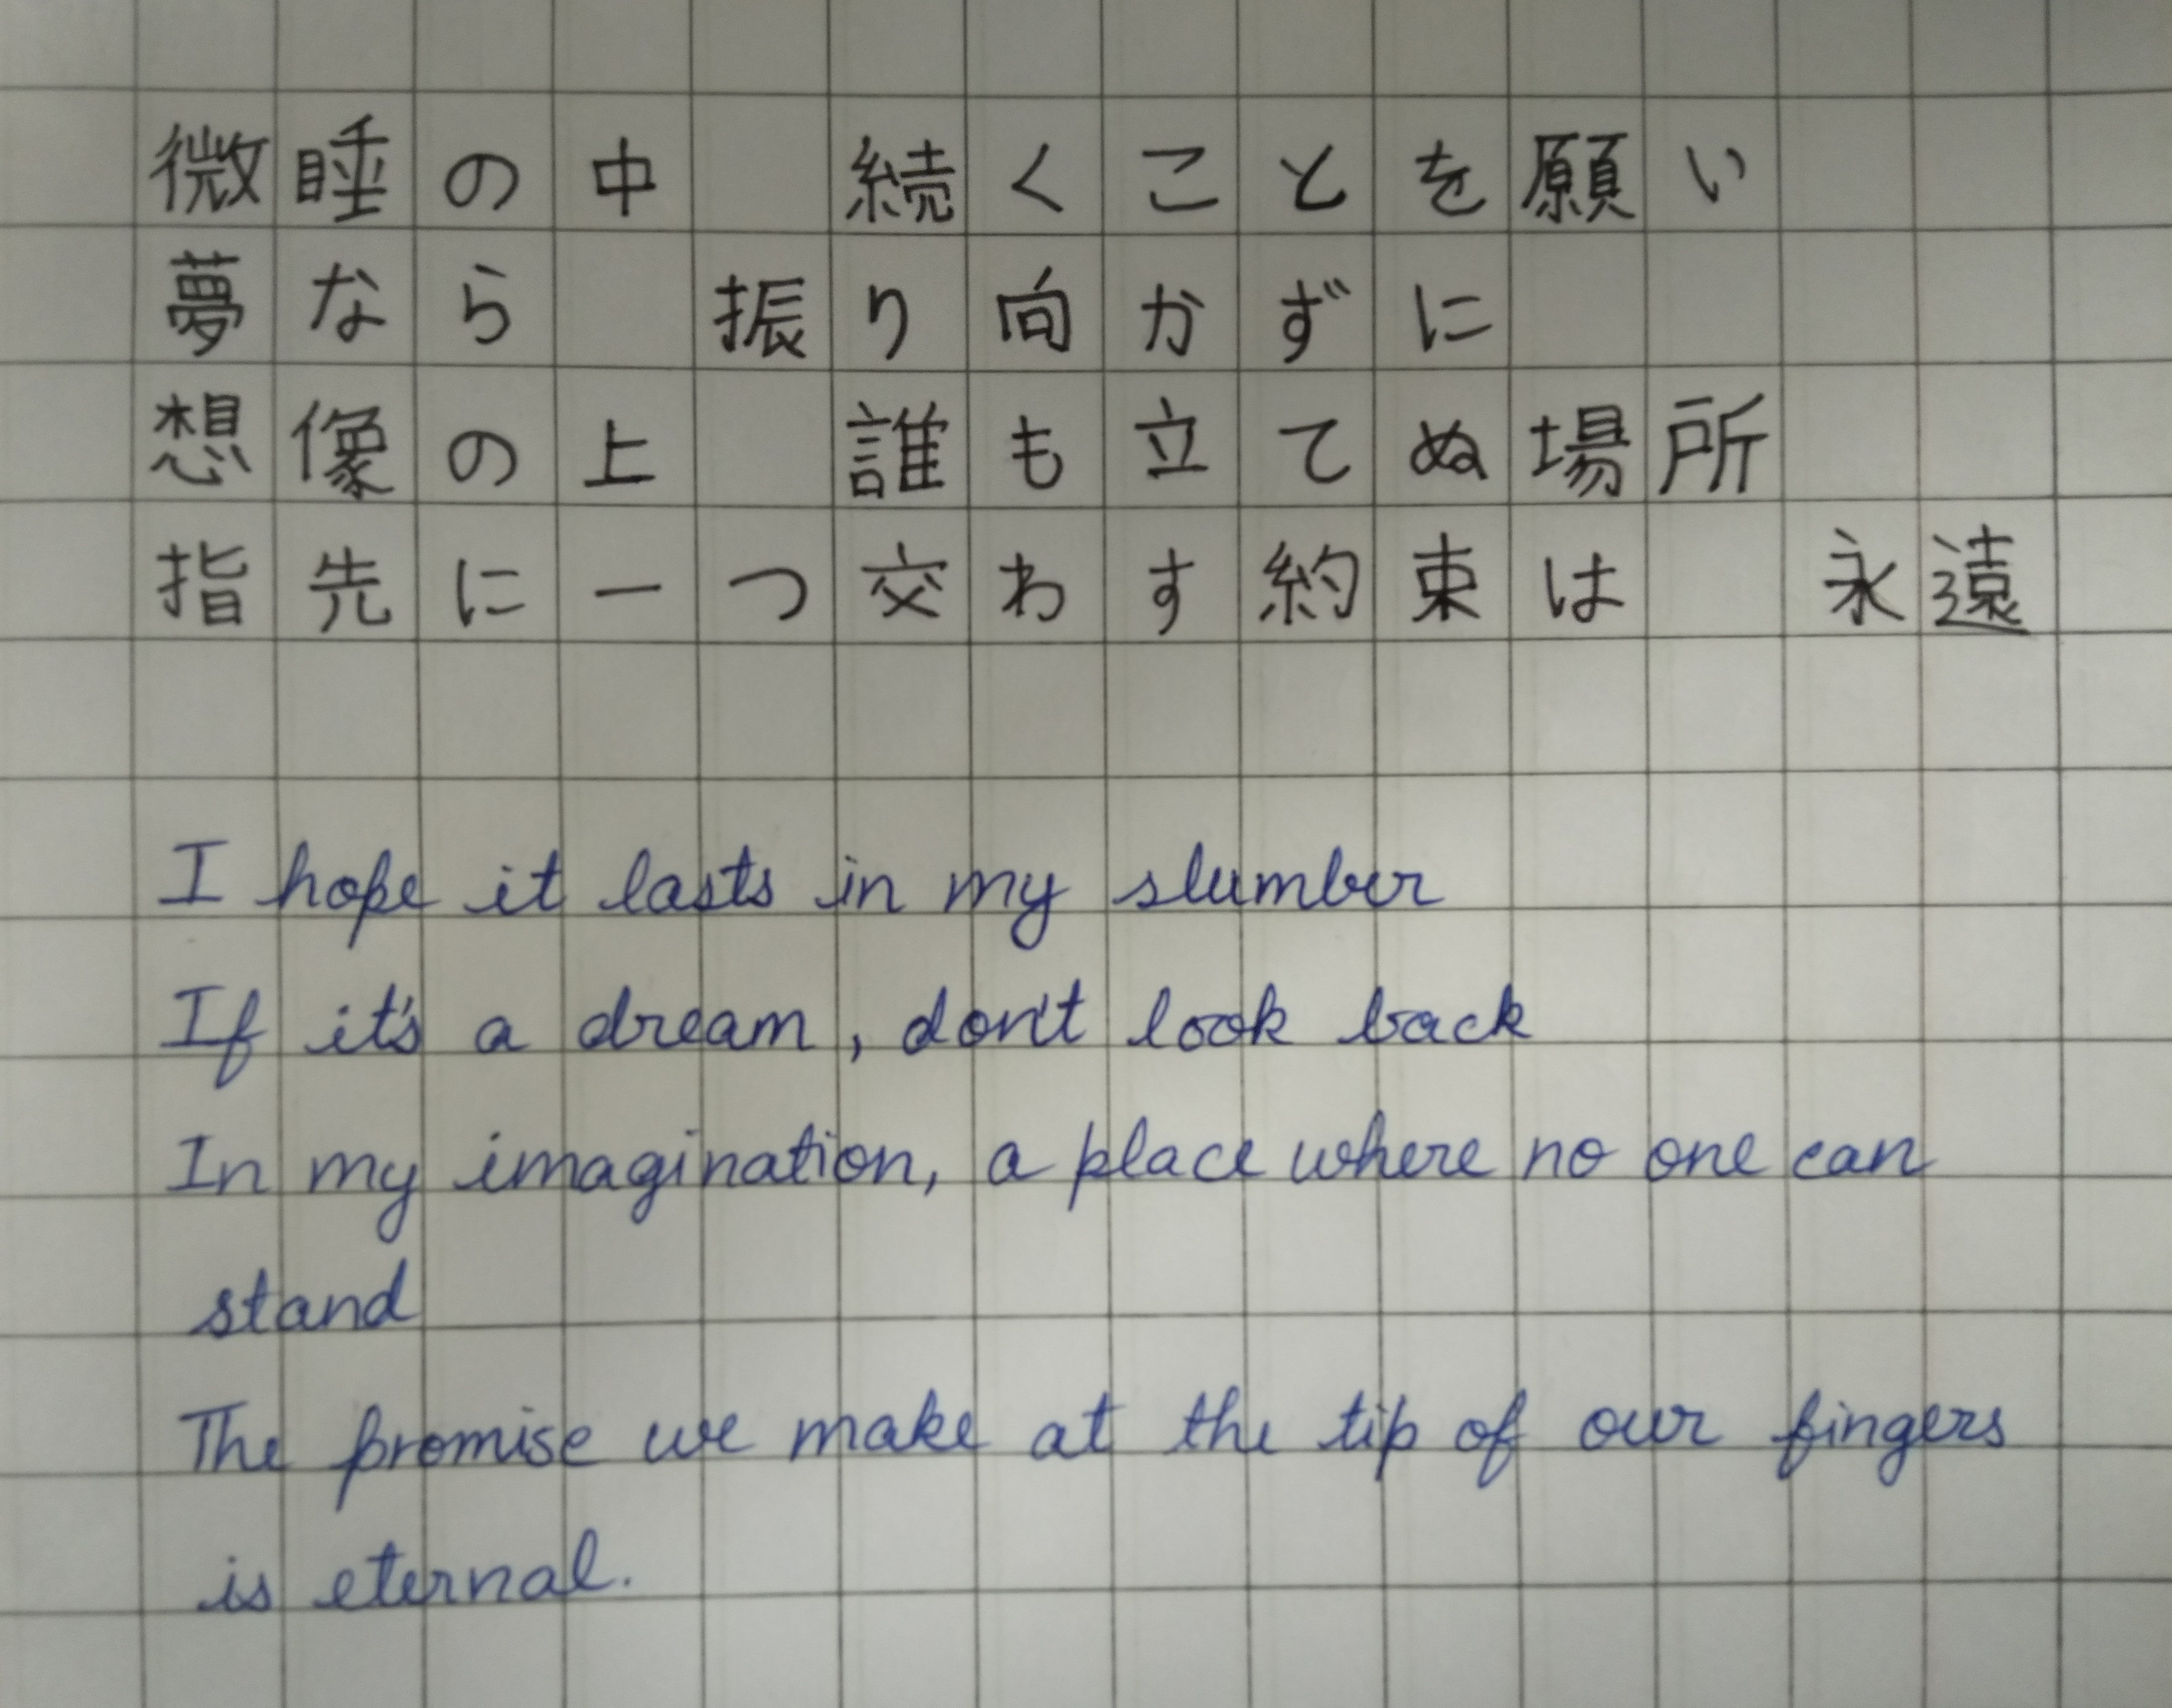 微睡の中　続くことを願い
夢なら　振り向かずに
想像の上　誰も立てぬ場所
指先に一つ交わす約束は　永遠
I hope it lasts in my slumber
If it's a dream, don't look back
In my imagination, a place where no one can
stand
The promise we make at the tip of our fingers
is eternal.